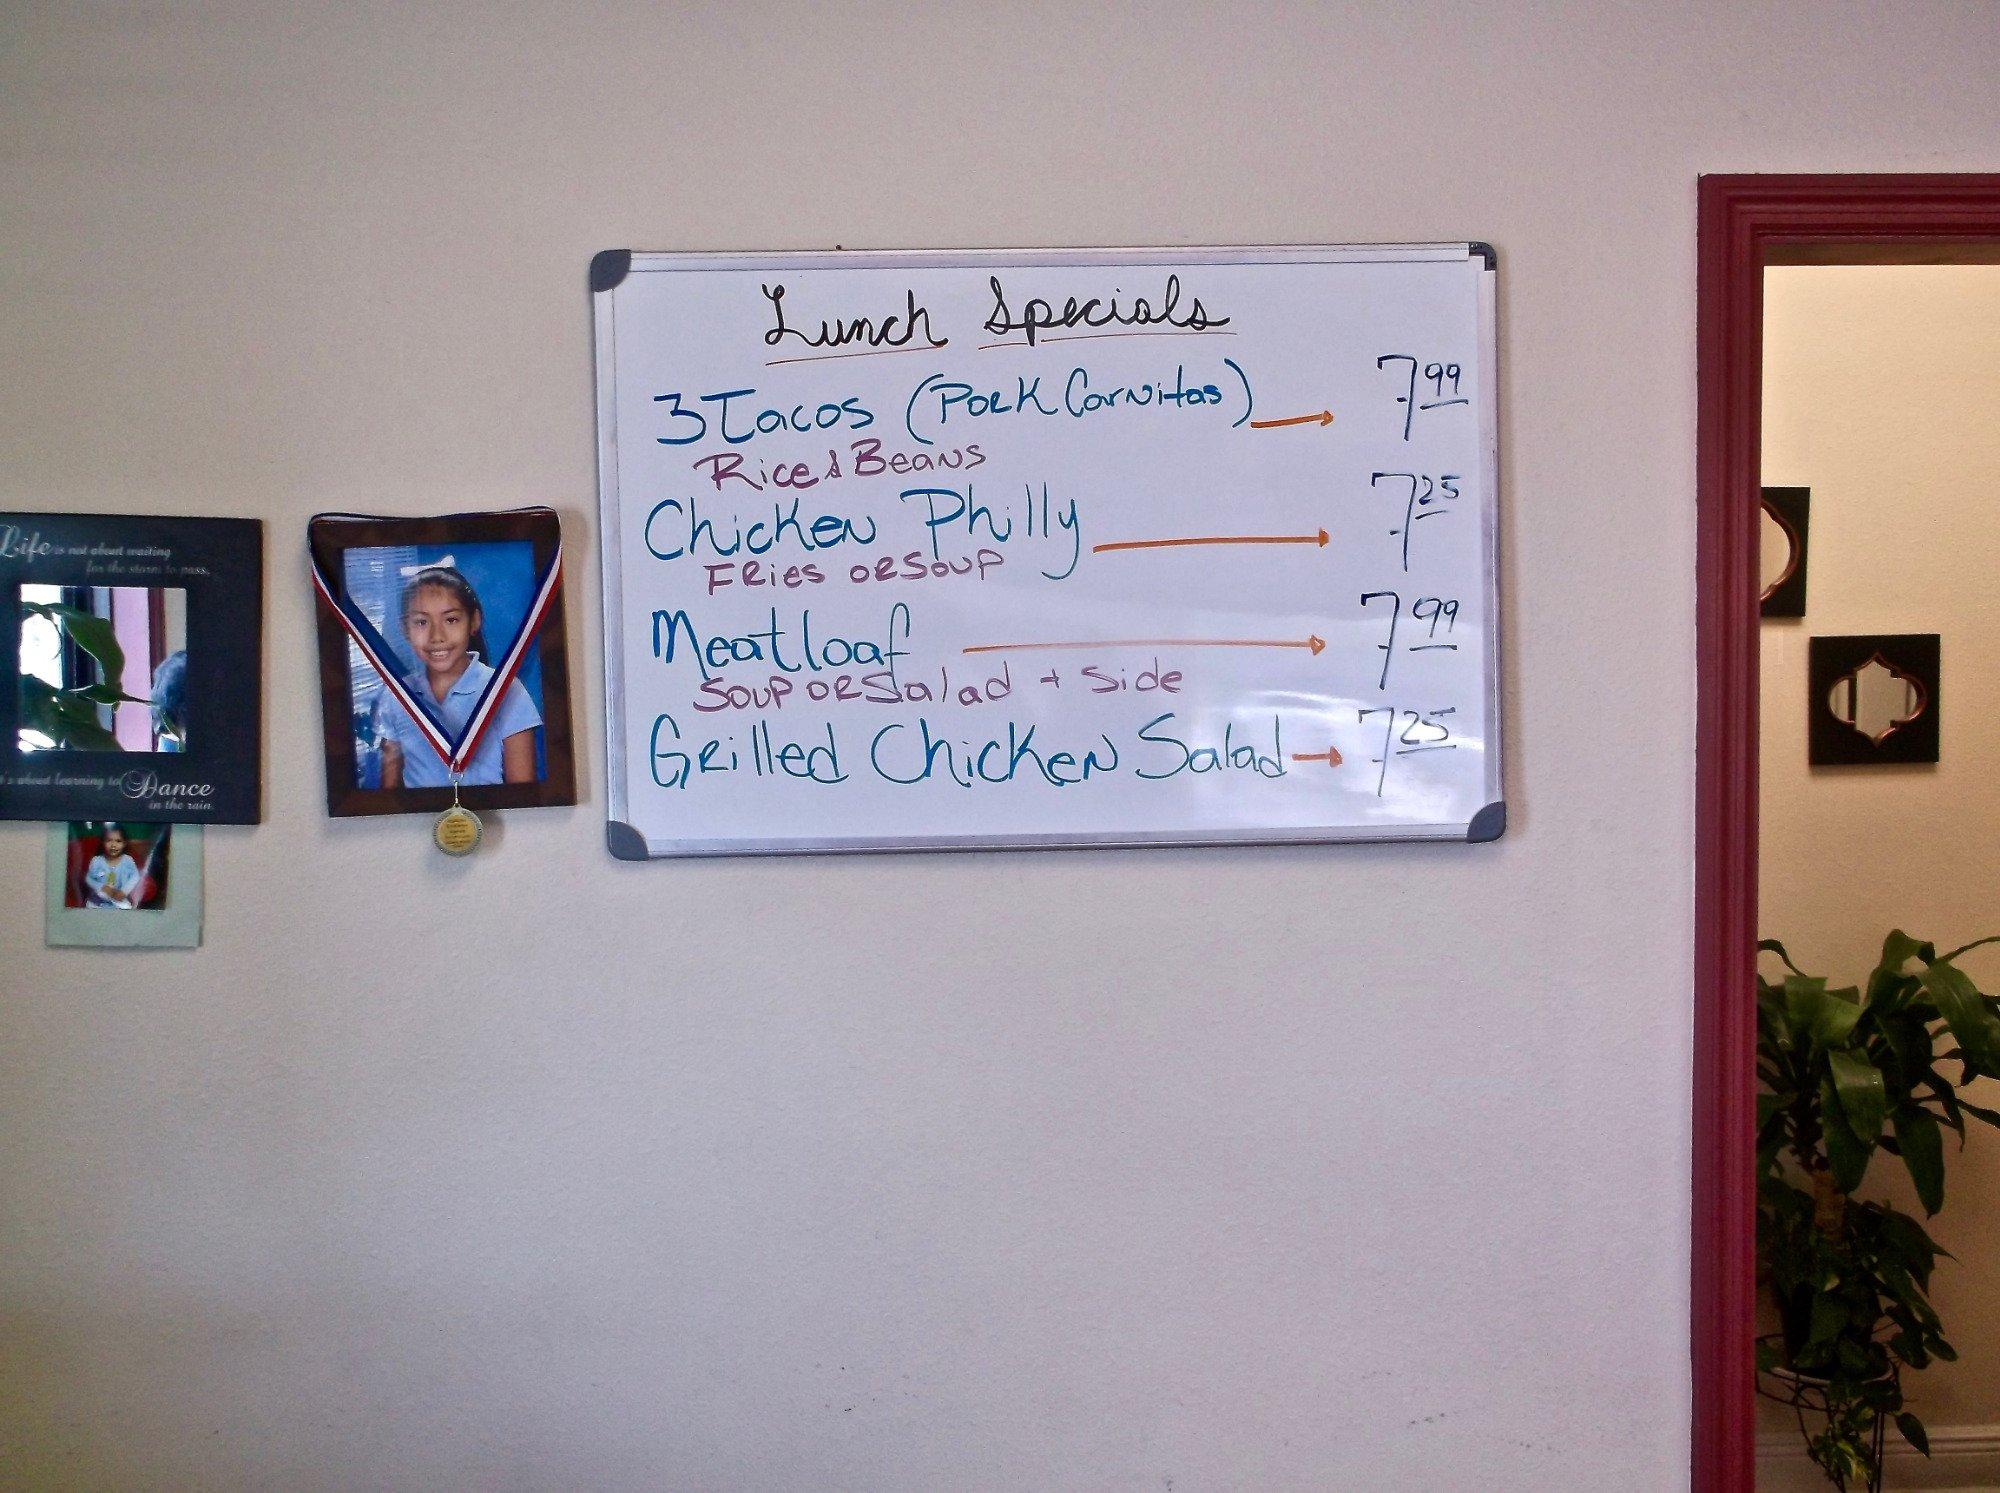 Lunch Specials
3 Tacos (Pork Carnitas) → 7.99
Rice & Beans
Chicken Philly → 7.25
Fries or Soup
Meatloaf → 7.99
Soup or Salad + Side
Grilled Chicken Salad → 7.25
Life is not about waiting
for the storm to pass,
it's about learning to Dance
in the rain.